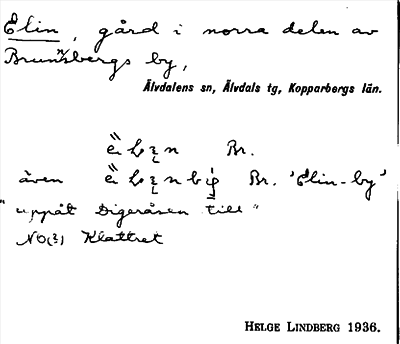 Elin, gård i norra delen av
Brunnsbergs by,
Älvdalens sn, Älvdals tg, Kopparbergs län.
Br.
även Br. 'Elin-by'
"uppåt Digeråsen till"
NO(?) Klattret
HELGE LINDBERG 1936.